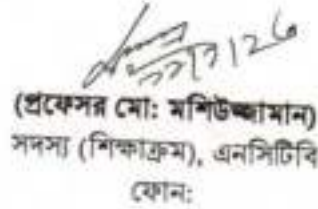 (প্রফেসর মো: মশিউজ্জামান)
সদস্য (শিক্ষাক্রম), এনসিটিবি
ফোন: